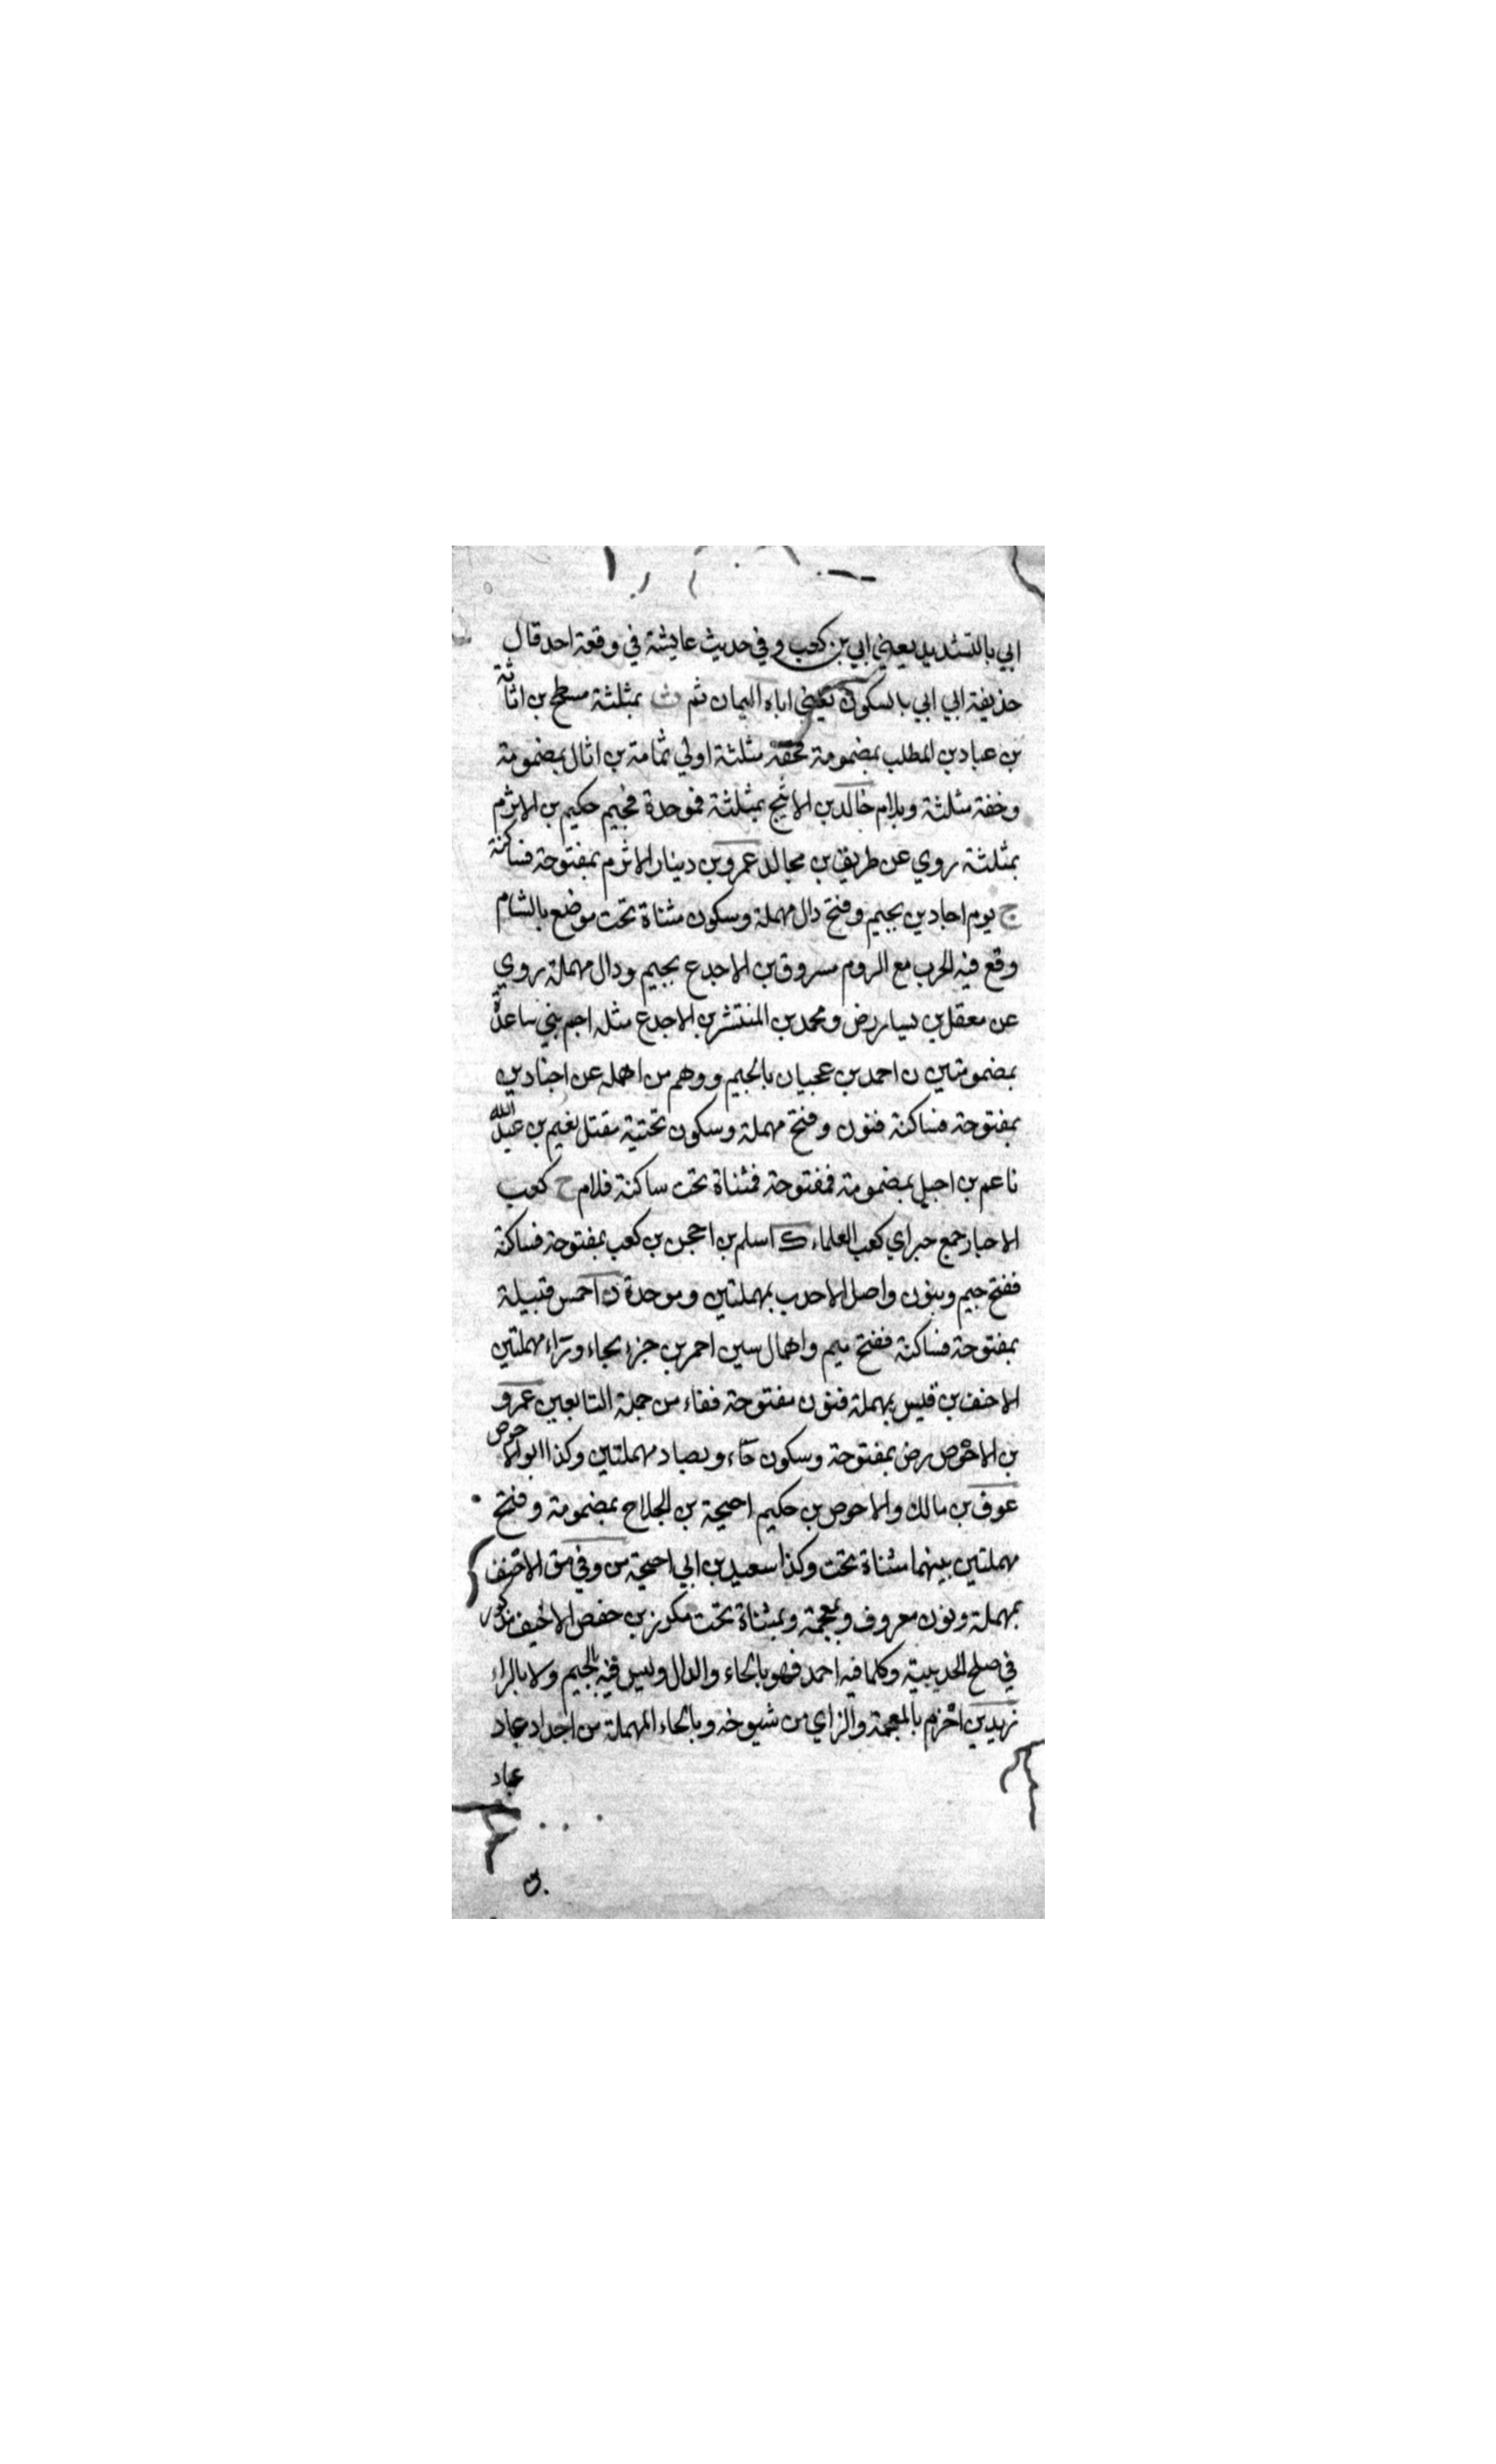 ابي بالتشديد يعني ابي بن كعب و في حديث عايشة في وقعة احد قال
حذيفة ابي ابي بالسكون يعني اباه اليمان ثم ث بمثلثة مسطح بن اثاثة
بن عباد بن المطلب بمضمومة مخففة مثلثة اولي ثمامة بن اثال بمضمومة
وخفة مثلثة وبلام خالد بن الاثبج بمثلثة فموحدة فجيم حكيم بن الاثرم
بمثلثة روي عن طريق بن مجالد عمرو بن دينار الاثرم بمفتوحة فساكنة
ج يوم اجادين بجيم وفتح دال مهملة وسكون مثناة تحت موضع بالشام
وقع فيه الحرب مع الروم مسروق بن الاجدع بجيم ودال مهملة روي
عن معقل بن يسار رض ومحمد بن المنتشر بن الاجدع مثله اجم بني ساعدة
بمضمومتين ن احمد بن عجيان بالجيم ووهم من اهمله عن اجنادين
بمفتوحة فساكنة فنون وفتح مهملة وسكون تحتية مقتل نعيم بن عبد الله
ناعم بن اجيل بمضمومة فمفتوحة فمثناة تحت ساكنة فلام ح كعب
الاحبار جمع حبر اي كعب العلماء ك اسلم بن احجن بن كعب بمفتوحة فساكنة
ففتح جيم وبنون واصل الاحدب بمهملتين وموحدة ن احمس قبيلة
بمفتوحة فساكنة ففتح ميم واهمال سين احمر بن جزء بحاء وراء مهملتين
الاحنف بن قيس بمهملة فنون مفتوحة ففاء من جملة التابعين عمرو
بن الاحوص رض بمفتوحة وسكون حاء وبصاد مهملتين وكذا ابو الاحوص
عوف بن مالك والاحوص بن حكيم احيحة بن الجلاح بمضمومة وفتح
مهملتين بينهما مثناة تحت وكذا سعيد بن ابي احيحة من وفي مق الاحنف
بمهملة ونون معروف وبمعجمة وبمثناة تحت مكرز بن حفص الاخيف مذكور
في صلح الحديبية وكلما فيه احمد فهو بالحاء والدال وليس فيه بالجيم ولا بالراء
زيد بن اخزم بالمعجمة والزاي من شيوخه وبالحاء المهملة من اجداد عباد
عباد